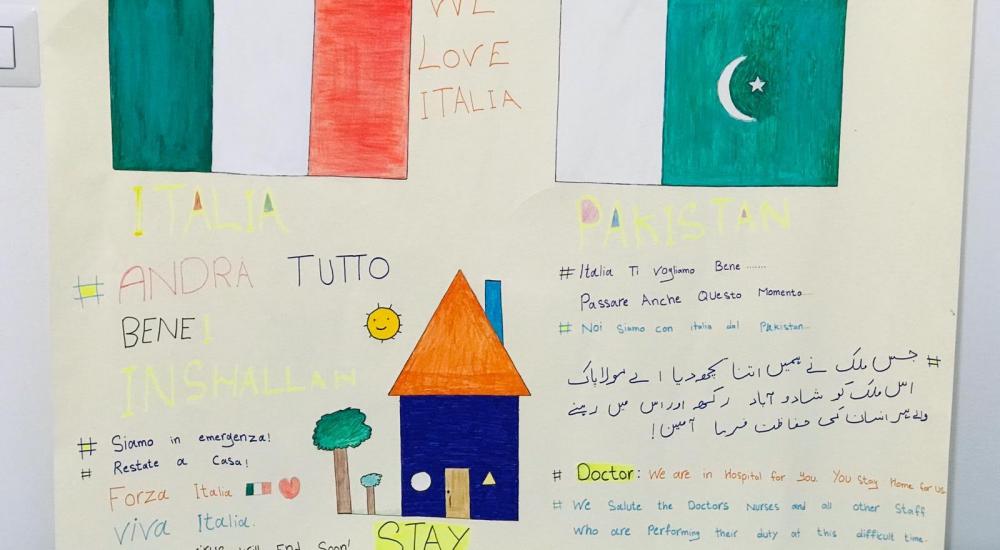 WE
LOVE
ITALIA
ITALIA
# ANDRÀ TUTTO
BENE!
INSHALLAH
# Siamo in emergenza!
# Restate a Casa!
Forza Italia
Viva Italia.
will End Soon!
STAY
PAKISTAN
# Italia Ti vogliamo Bene .......
Passare Anche Questo Momento...
# Noi Siamo con italia dal Pakistan...
# جس ملک نے ہمیں اتنا کچھ دیا اے مولا پاک
اس ملک کو شاد و آباد رکھ اور اس میں رہنے
والے ہر انسان کی حفاظت فرما آمین!
# Doctor: We are in Hospital for You. You Stay Home for us.
# We Salute the Doctors Nurses and all other Staff
who are Performing their duty at this difficult time.